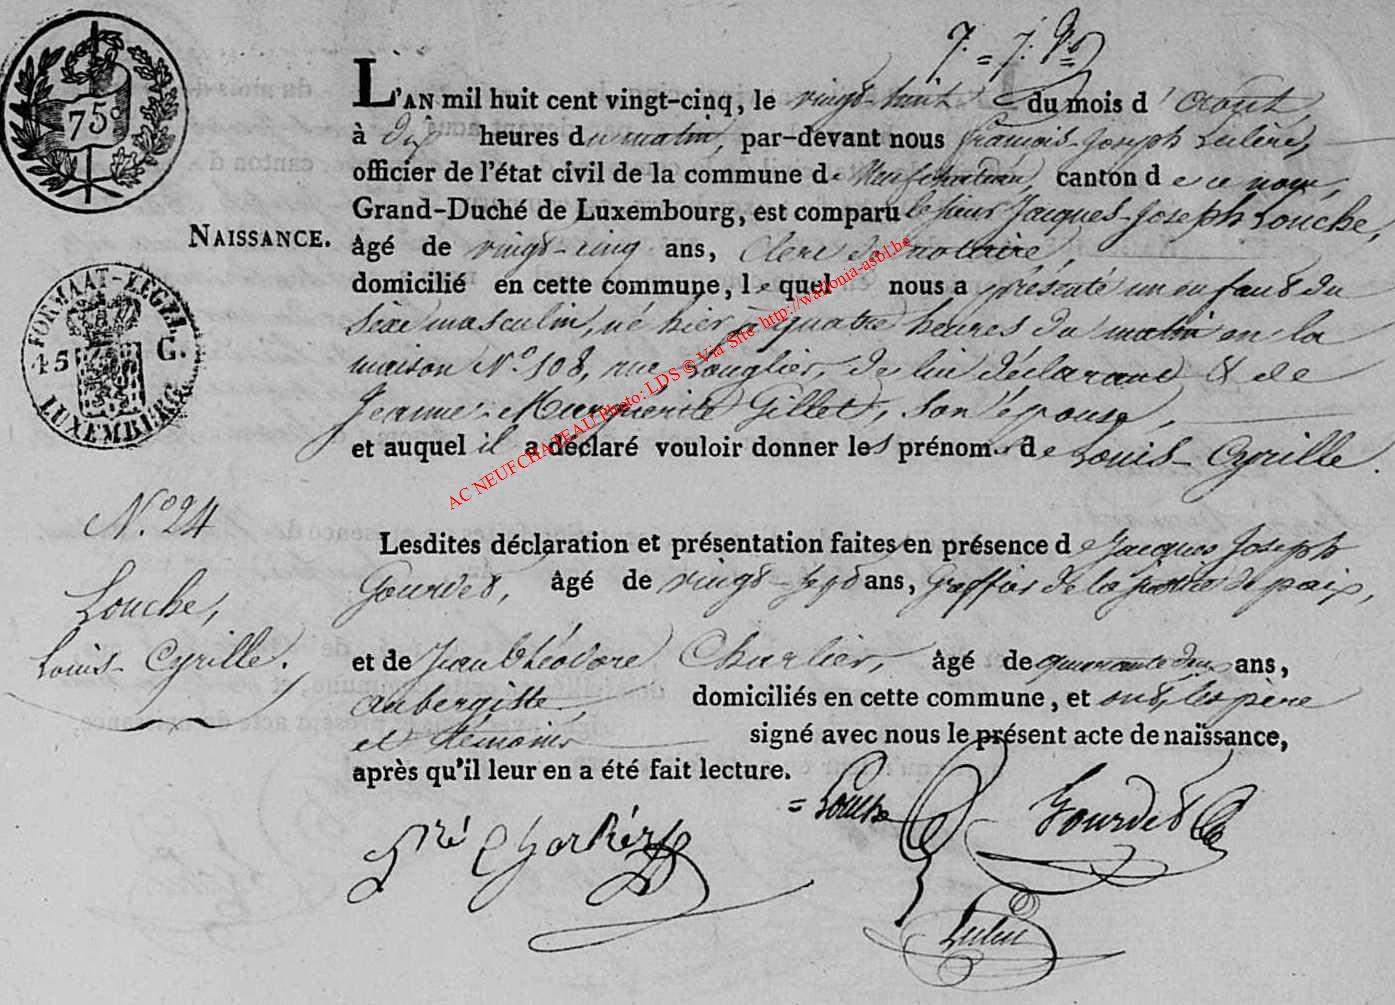 75c
L'AN mil huit cent vingt-cinq, le vingt-huit du mois d'Août,
à dix heures du matin, par-devant nous François-Joseph
officier de l'état civil de la commune de Neufchâteau, canton de ce nom,
Grand-Duché de Luxembourg, est comparu le sieur Jacques-Joseph Louche,
NAISSANCE.
âgé de vingt-cinq ans, Clerc de notaire,
domicilié en cette commune, lequel nous a présenté un enfant du
sexe masculin, né hier à quatre heures du matin en la
maison N.o 108, rue Longlier, de lui déclarant & de
Jeanne-Marguerite Gillet, son épouse,
et auquel il a déclaré vouloir donner les prénoms de Louis-Cyrille.
FORMAAT-ZEGEL
45 G.
LUXEMBERG
AC NEUFCHATEAU Photo: LDS © Via Site http://wallonia-asbl.be
N.o 24
Louche,
Louis-Cyrille.
Lesdites déclaration et présentation faites en présence de Jacques Joseph
Gourdet, âgé de vingt-sept ans, Greffier de la justice de paix,
et de Jean Théodore Charlier, âgé de quarante deux ans,
aubergiste, domiciliés en cette commune, et ont, les père
et témoins signé avec nous le présent acte de naissance,
après qu'il leur en a été fait lecture.
Louche
Gourdet